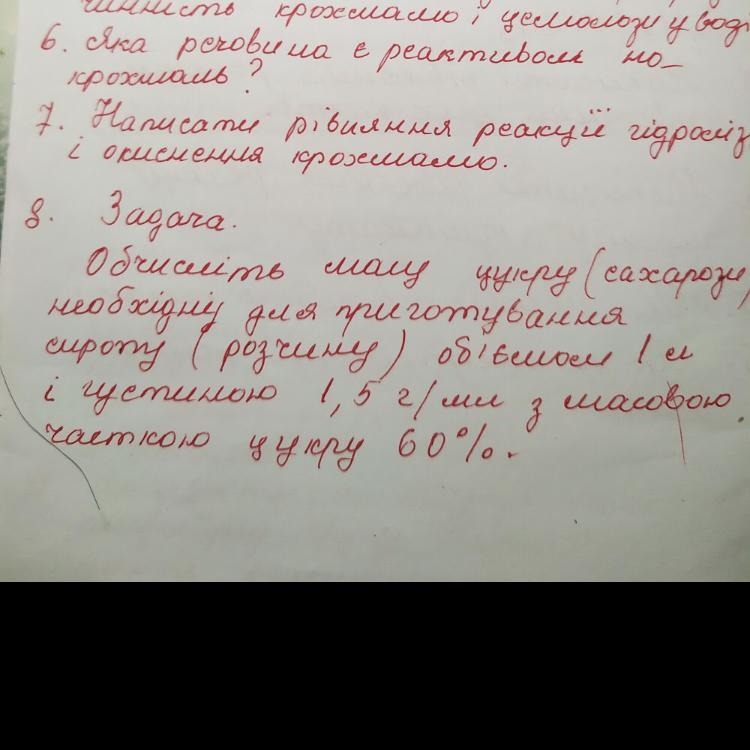 чинність крохмалю і целюлози у воді
6. Яка речовина є реактивом на
крохмаль?
7. Написати рівняння реакції гідроліз
і окиснення крохмалю.
8. Задача.
Обчисліть масу цукру (сахарози)
необхідну для приготування
сиропу (розчину) об'ємом 1 л
і густиною 1,5 г/мл з масовою
часткою цукру 60%.